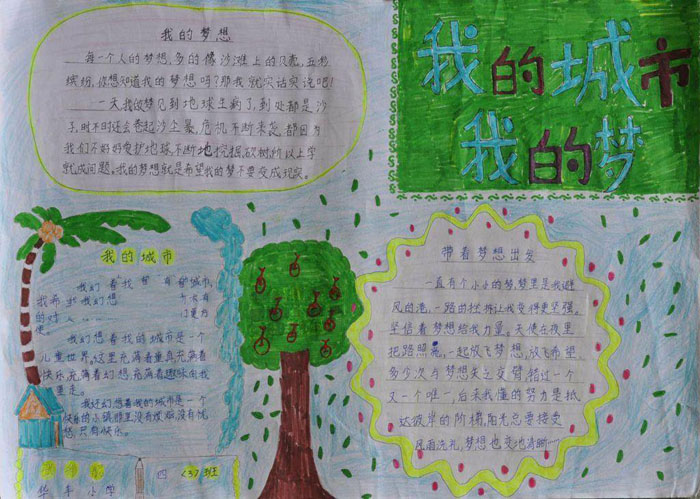 我的梦想
每一个人的梦想,多的像沙滩上的贝壳,五彩
缤纷,你想知道我的梦想吗?那我就实话实说吧!
一天我做梦见到地球生病了,到处都是沙
子,时不时还会卷起沙尘暴,危机不断来袭,都因为
我们不好好爱护地球不断地挖掘,砍树所以上学
就成问题。我的梦想就是希望我的梦不要变成现实。
我的城市
我的梦
我的城市
我们 城市,
我 幻想
的对
使。
我幻想着我的城市是一个
儿童世界,这里充满着童真充满着
快乐,充满着幻想,充满着趣味由我
里走。
我还幻想着我的城市是一个
快乐的小镇,那里没有烦恼,没有忧
愁,只有快乐。
四 <3>班
华丰小学
带着梦想出发
一直有个小小的梦,梦里是我避
风的港,一路曲折让我变得更坚强。
坚信着梦想给我力量。天使在夜里
把路照亮,一起放飞梦想,放飞希望
多少次与梦想失之交臂错过一个
又一个唯一,后来我懂的努力是抵
达彼岸的阶梯,阳光总要接受
风雨洗礼,梦想也变也清晰……